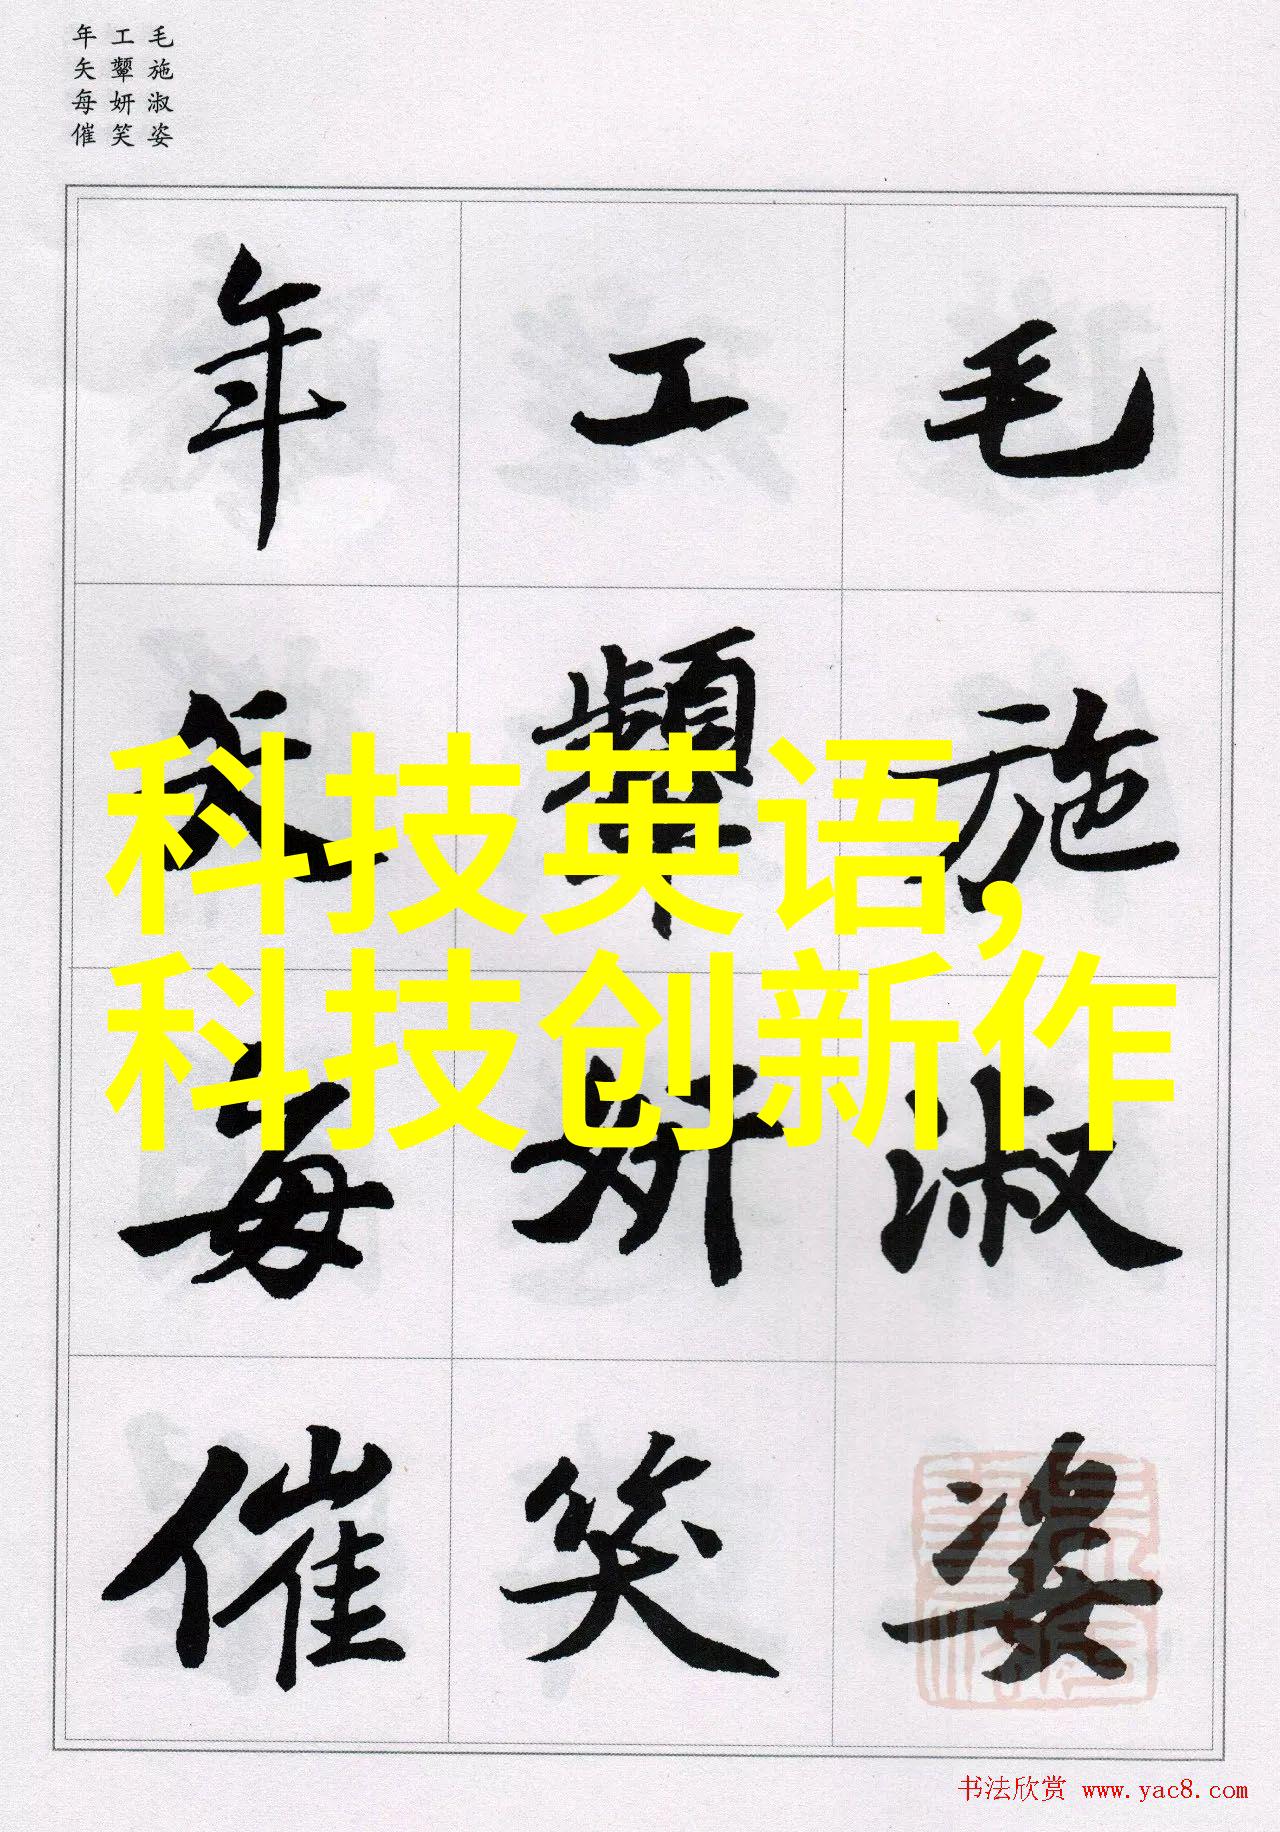 毛施淑姿
工颦妍笑
年矢每催
毛施淑姿
工颦妍笑
年矢每催
科技英语,
科技创新作
书法欣赏 www.yac8.com